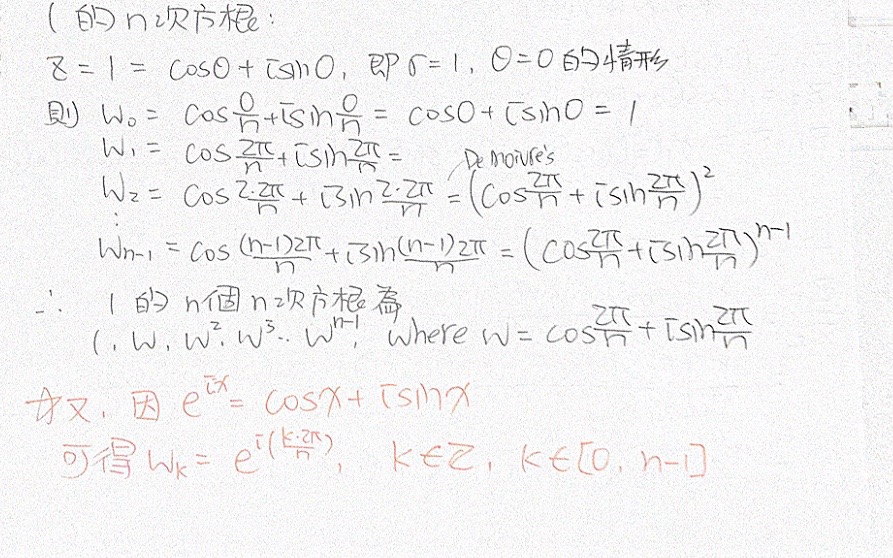 1 的 n 次方根:
z = 1 = cos0 + i sin0, 即 r = 1, θ = 0 的情形
則 W₀ = cos 0/n + i sin 0/n = cos0 + i sin0 = 1
W₁ = cos 2π/n + i sin 2π/n =
De Moivre's
W₂ = cos 2·2π/n + i sin 2·2π/n = (cos 2π/n + i sin 2π/n)²
⋮
Wn-1 = cos (n-1)2π/n + i sin (n-1)2π/n = (cos 2π/n + i sin 2π/n)ⁿ⁻¹
∴ 1 的 n個 n 次方根為
1, W, W², W³.. Wⁿ⁻¹, where W = cos 2π/n + i sin 2π/n
又, 因 e^{ix} = cosx + i sinx
可得 Wₖ = e^{i(k·2π/n)}, k ∈ Z, k ∈ [0, n-1]